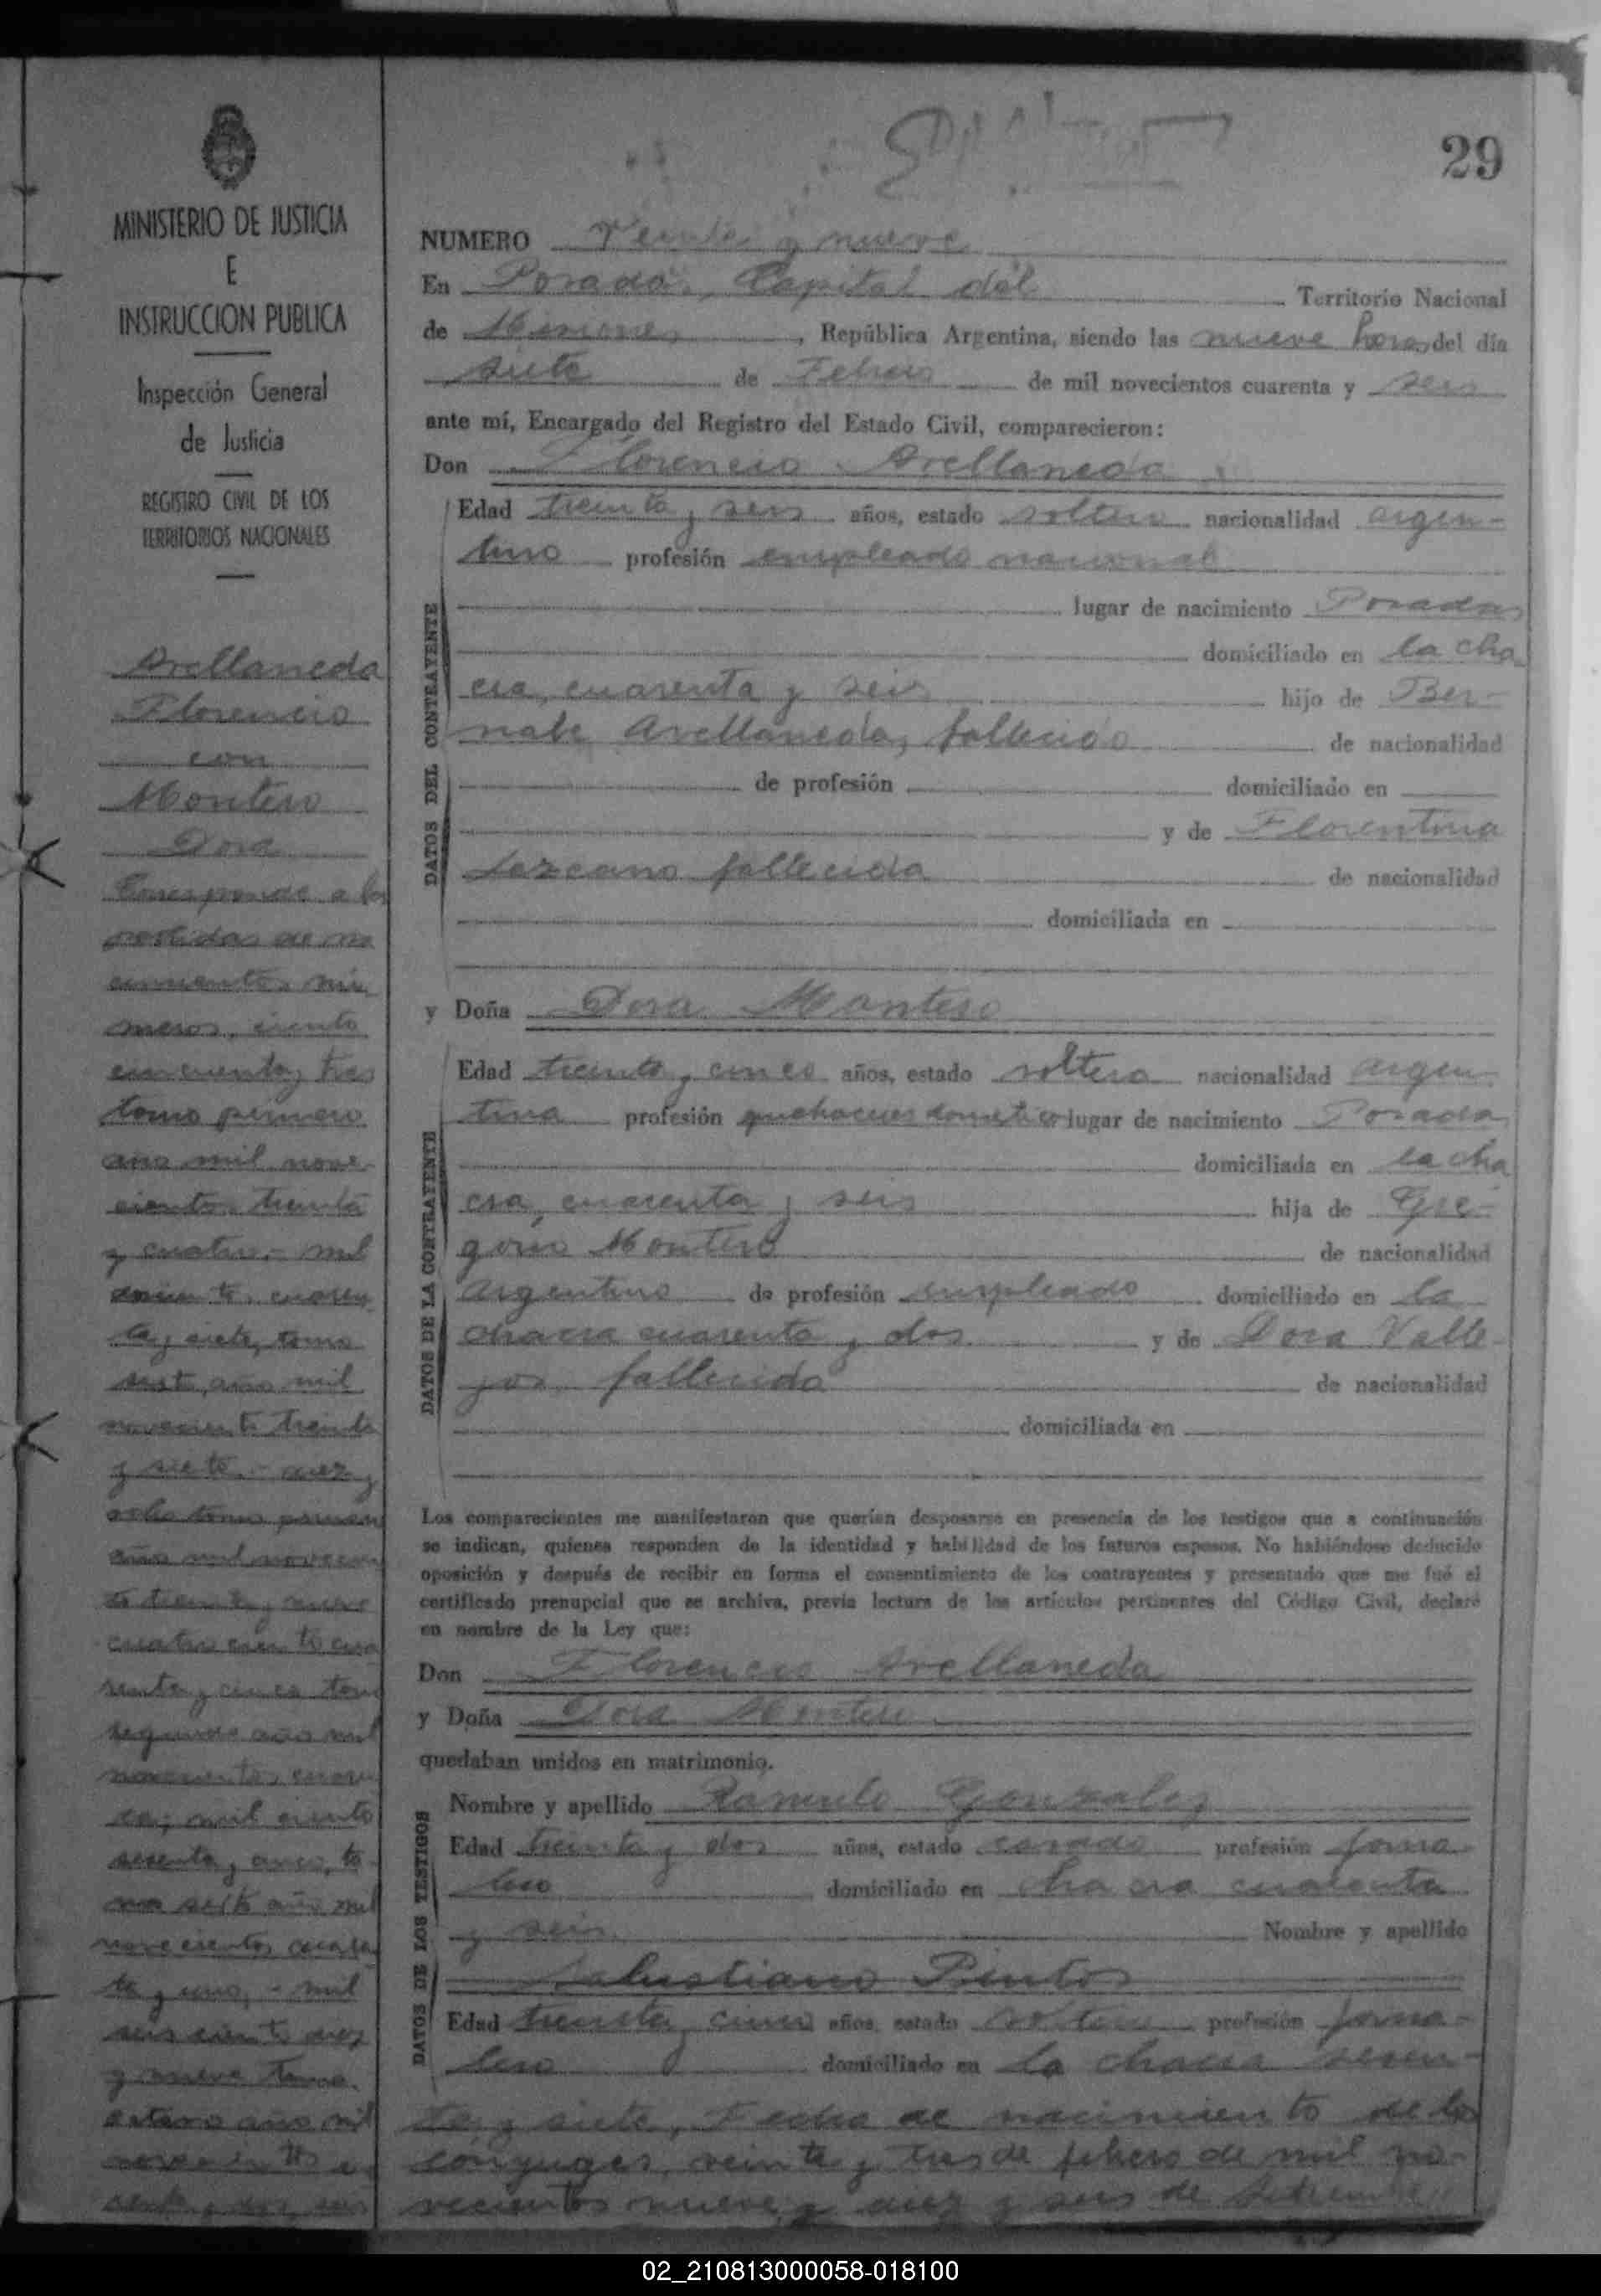 29
MINISTERIO DE JUSTICIA
E
INSTRUCCION PUBLICA
Inspección General
de Justicia
REGISTRO CIVIL DE LOS
TERRITORIOS NACIONALES
Avellaneda
Florencio
con
Montero
Dora
Corresponde a las
partidas de na
cimientos nú
meros, ciento
cincuenta y tres
tomo primero
año mil nove-
cientos treinta
y cuatro.- mil
ciento cuaren
ta y siete, tomo
sexto, año mil
novecientos treinta
y siete.- diez y
ocho tomo primero
año mil novecien
tos treinta y nueve
cuatrocientos cua
renta y cinco tomo
segundo año mil
novecientos cuaren
ta; mil ciento
sesenta y cinco, to
mo sexto año mil
novecientos cuaren
ta y uno, - mil
seiscientos diez
y nueve tomo
octavo año mil
NUMERO Veinte y nueve
En Posadas, Capital del Territorio Nacional
de Misiones, República Argentina, siendo las nueve horas del día
siete de Febrero de mil novecientos cuarenta y seis
ante mí, Encargado del Registro del Estado Civil, comparecieron:
Don Florencio Avellaneda
DATOS DEL CONTRAYENTE
Edad treinta y seis años, estado soltero nacionalidad argen-
tino profesión empleado nacional
lugar de nacimiento Posadas
domiciliado en la cha
cra, cuarenta y seis hijo de Ber-
nabe Avellaneda, fallecido de nacionalidad
de profesión domiciliado en
y de Florentina
Lezcano fallecida de nacionalidad
domiciliada en
y Doña Dora Montero
DATOS DE LA CONTRAYENTE
Edad treinta y cinco años, estado soltera nacionalidad argen-
tina profesión quehaceres domestico lugar de nacimiento Posadas
domiciliada en la cha
cra, cuarenta y seis hija de Gre-
gorio Montero de nacionalidad
argentino de profesión empleado domiciliado en la
chacra cuarenta y dos y de Dora Valle-
jos fallecida de nacionalidad
domiciliada en
Los comparecientes me manifestaron que querían desposarse en presencia de los testigos que a continuación
se indican, quienes responden de la identidad y habilidad de los futuros esposos. No habiéndose deducido
oposición y después de recibir en forma el consentimiento de los contrayentes y presentado que me fué el
certificado prenupcial que se archiva, previa lectura de los artículos pertinentes del Código Civil, declaré
en nombre de la Ley que:
Don Florencio Avellaneda
y Doña Dora Montero
quedaban unidos en matrimonio.
DATOS DE LOS TESTIGOS
Nombre y apellido Ramulo Gonzalez
Edad treinta y dos años, estado casado profesión jorna-
lero domiciliado en chacra cuarenta
y seis Nombre y apellido
Salustiano Pintos
Edad treinta y cinco años, estado soltero profesión jorna-
lero domiciliado en la chacra sesen-
ta y siete, Fecha de nacimiento de los
conyuges, veinte y tres de febrero de mil no-
vecientos nueve y diez y seis de Setiembre
02_210813000058-018100